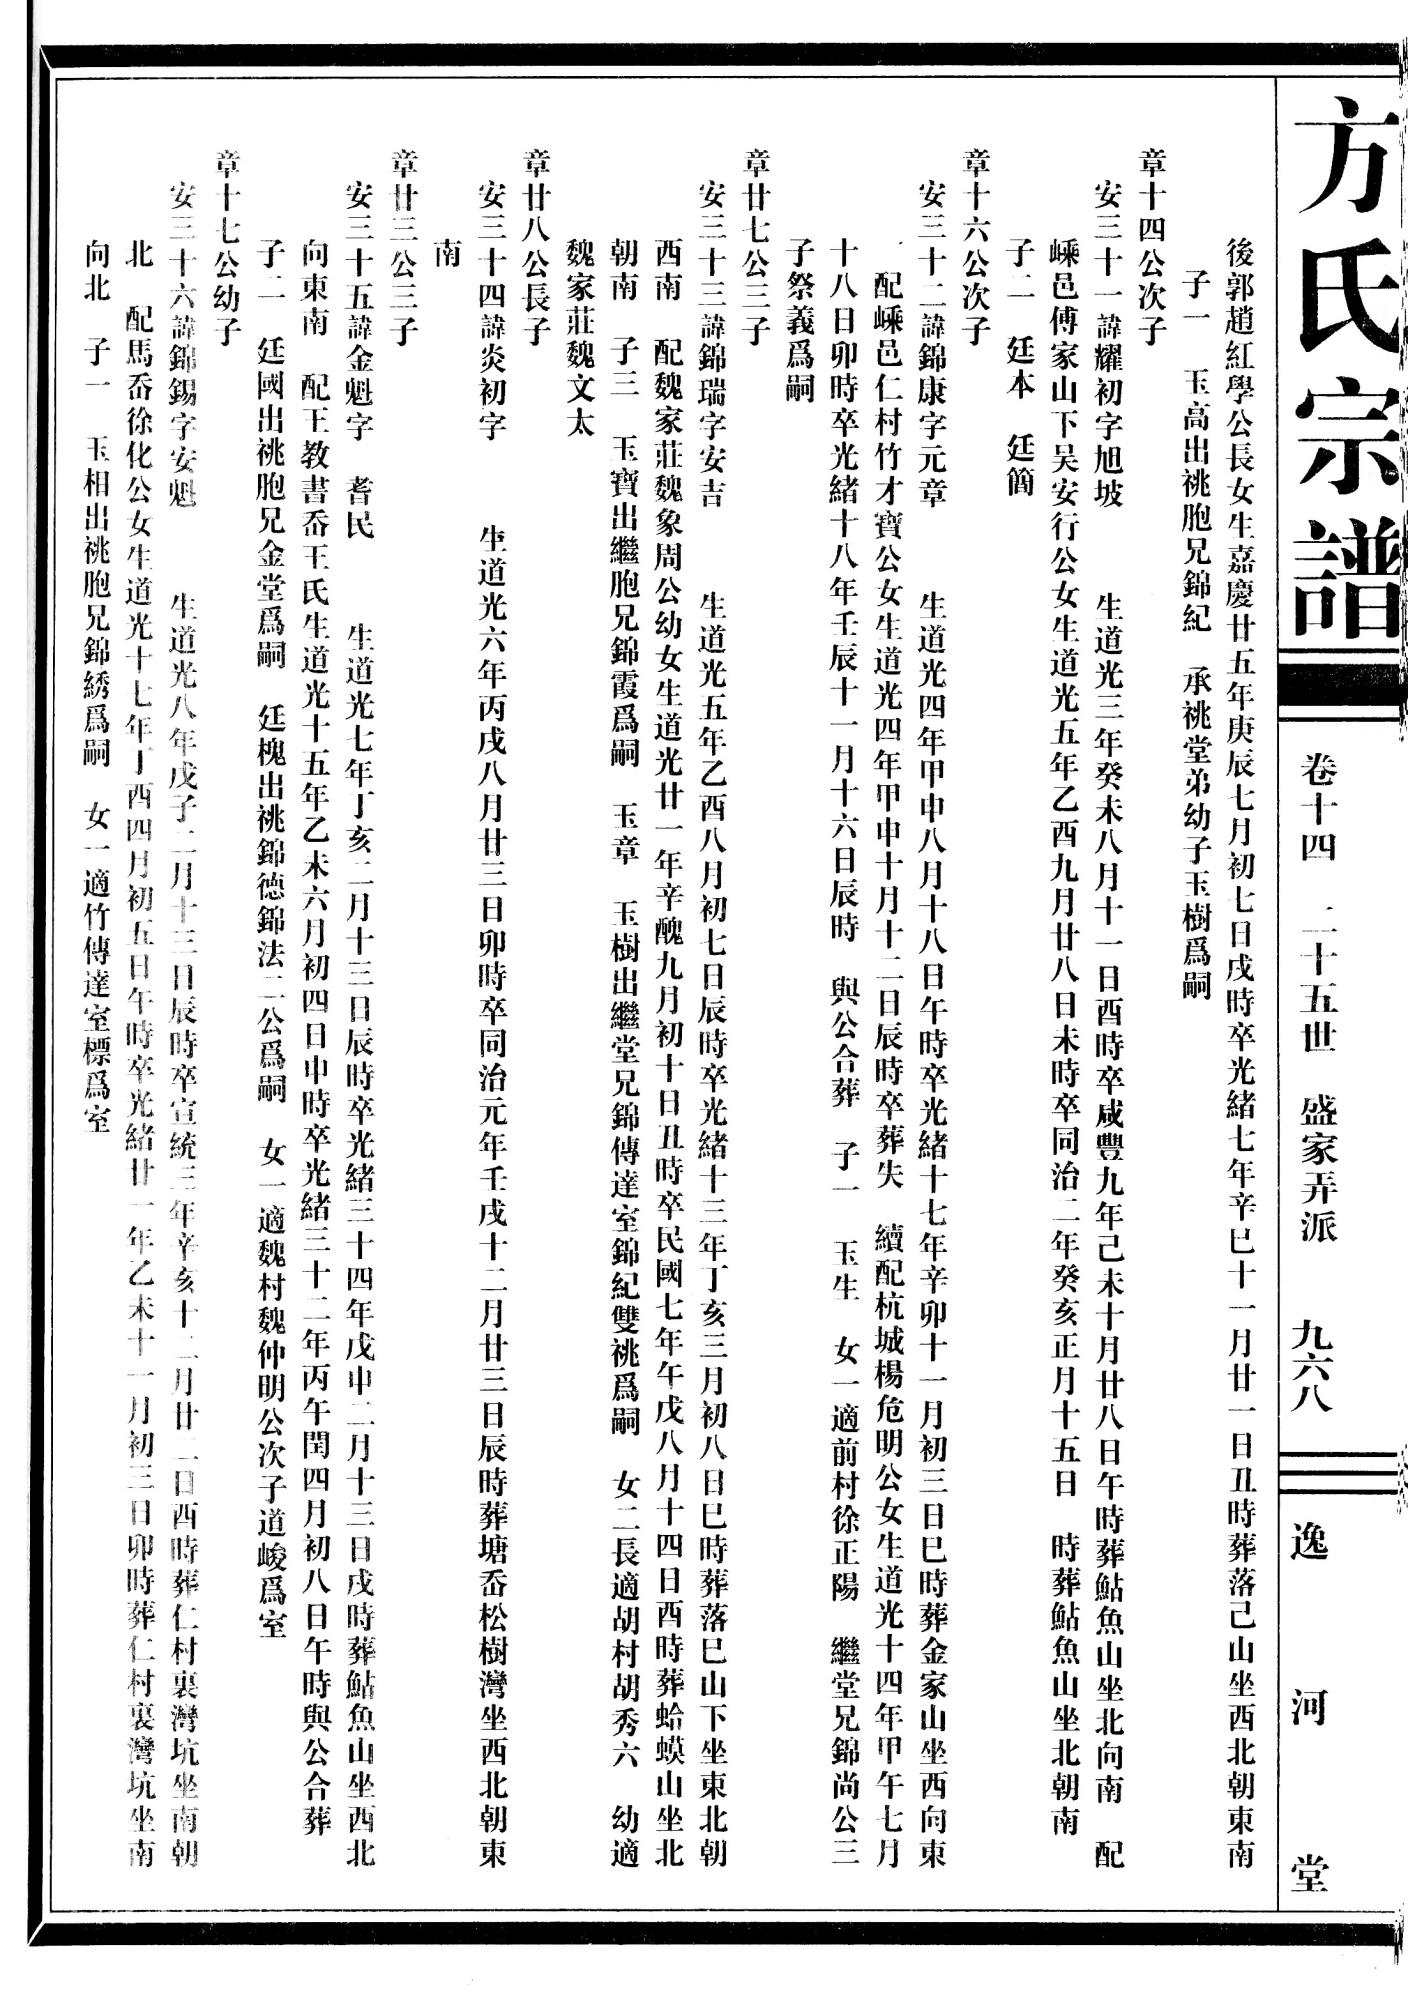 方氏宗譜
卷十四 二十五世 盛家弄派 九六八
逸河堂
後郭趙紅學公長女生嘉慶廿五年庚辰七月初七日戌時卒光緒七年辛巳十一月廿一日丑時葬落己山坐西北朝東南
子一 玉高出祧胞兄錦紀 承祧堂弟幼子玉樹爲嗣
章十四公次子
安三十一諱耀初字旭坡 生道光三年癸未八月十一日酉時卒咸豐九年己未十月廿八日午時葬鮎魚山坐北向南 配
嵊邑傅家山下吴安行公女生道光五年乙酉九月廿八日未時卒同治二年癸亥正月十五日 時葬鮎魚山坐北朝南
子二 廷本 廷簡
章十六公次子
安三十二諱錦康字元章 生道光四年甲申八月十八日午時卒光緒十七年辛卯十一月初三日巳時葬金家山坐西向東
配嵊邑仁村竹才寶公女生道光四年甲申十月十二日辰時卒葬失 續配杭城楊危明公女生道光十四年甲午七月
十八日卯時卒光緒十八年壬辰十一月十六日辰時 與公合葬 子一 玉生 女一適前村徐正陽 繼堂兄錦尚公三
子祭義爲嗣
章廿七公三子
安三十三諱錦瑞字安吉 生道光五年乙酉八月初七日辰時卒光緒十三年丁亥三月初八日巳時葬落巳山下坐東北朝
西南 配魏家莊魏象周公幼女生道光廿一年辛醜九月初十日丑時卒民國七年午戊八月十四日酉時葬蛤蟆山坐北
朝南 子三 玉寶出繼胞兄錦霞爲嗣 玉章 玉樹出繼堂兄錦傳達室錦紀雙祧爲嗣 女二長適胡村胡秀六 幼適
魏家莊魏文太
章廿八公長子
安三十四諱炎初字 生道光六年丙戌八月廿三日卯時卒同治元年壬戌十二月廿三日辰時葬塘岙松樹灣坐西北朝東
南
章廿三公三子
安三十五諱金魁字 耆民 生道光七年丁亥二月十三日辰時卒光緒三十四年戊申二月十三日戌時葬鮎魚山坐西北
向東南 配王教書岙王氏生道光十五年乙未六月初四日申時卒光緒三十二年丙午閏四月初八日午時與公合葬
子二 廷國出祧胞兄金堂爲嗣 廷槐出祧錦德錦法二公爲嗣 女一適魏村魏仲明公次子道峻爲室
章十七公幼子
安三十六諱錦錫字安魁 生道光八年戊子二月十三日辰時卒宣統三年辛亥十二月廿二日酉時葬仁村裏灣坑坐南朝
北 配馬岙徐化公女生道光十七年丁酉四月初五日午時卒光緒廿一年乙未十一月初三日卯時葬仁村裏灣坑坐南
向北 子一 玉相出祧胞兄錦綉爲嗣 女一適竹傳達室標爲室